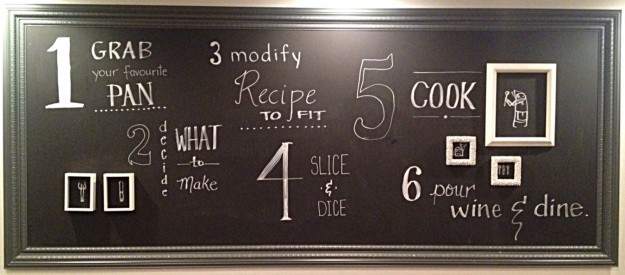 1 GRAB
your favourite
PAN
2 decide WHAT
to
make
3 modify
Recipe
TO FIT
4 SLICE
&
DICE
5 COOK
6 pour
wine & dine.